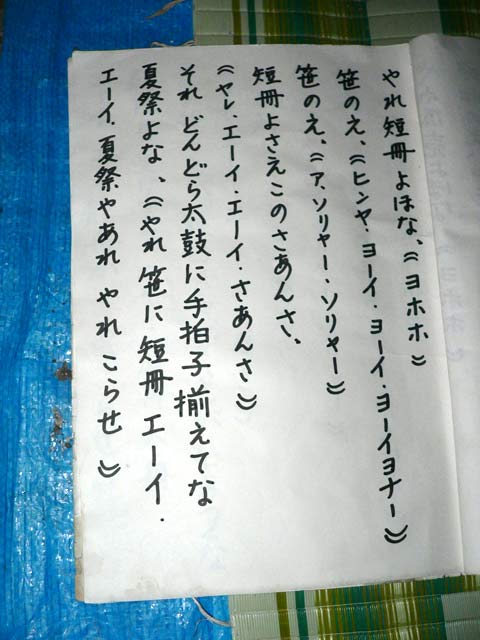 やれ短冊よほな、⟪ヨホホ⟫
笹のえ、⟪ヒンヤ・ヨーイ・ヨーイ・ヨーイヨナー⟫
笹のえ、⟪ア、ソリャー・ソリャー⟫
短冊よさえこのさあんさ、
⟪ヤレ・エーイ・エーイ・さあんさ⟫
それ どんどら太鼓に手拍子揃えてな
夏祭よな、⟪やれ 笹に 短冊 エーイ・
エーイ・夏祭やあれ やれ こらせ ⟫